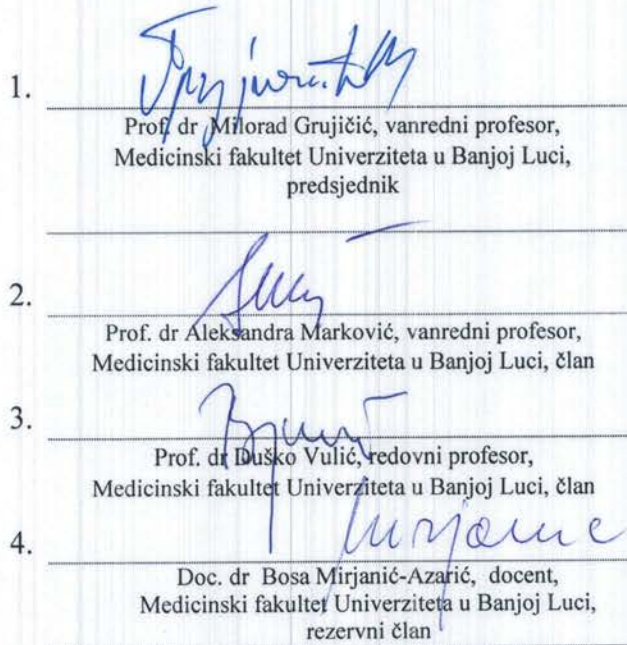 1.
Prof. dr Milorad Grujičić, vanredni profesor,
Medicinski fakultet Univerziteta u Banjoj Luci,
predsjednik
2.
Prof. dr Aleksandra Marković, vanredni profesor,
Medicinski fakultet Univerziteta u Banjoj Luci, član
3.
Prof. dr Duško Vulić, redovni profesor,
Medicinski fakultet Univerziteta u Banjoj Luci, član
4.
Doc. dr Bosa Mirjanić-Azarić, docent,
Medicinski fakultet Univerziteta u Banjoj Luci,
rezervni član